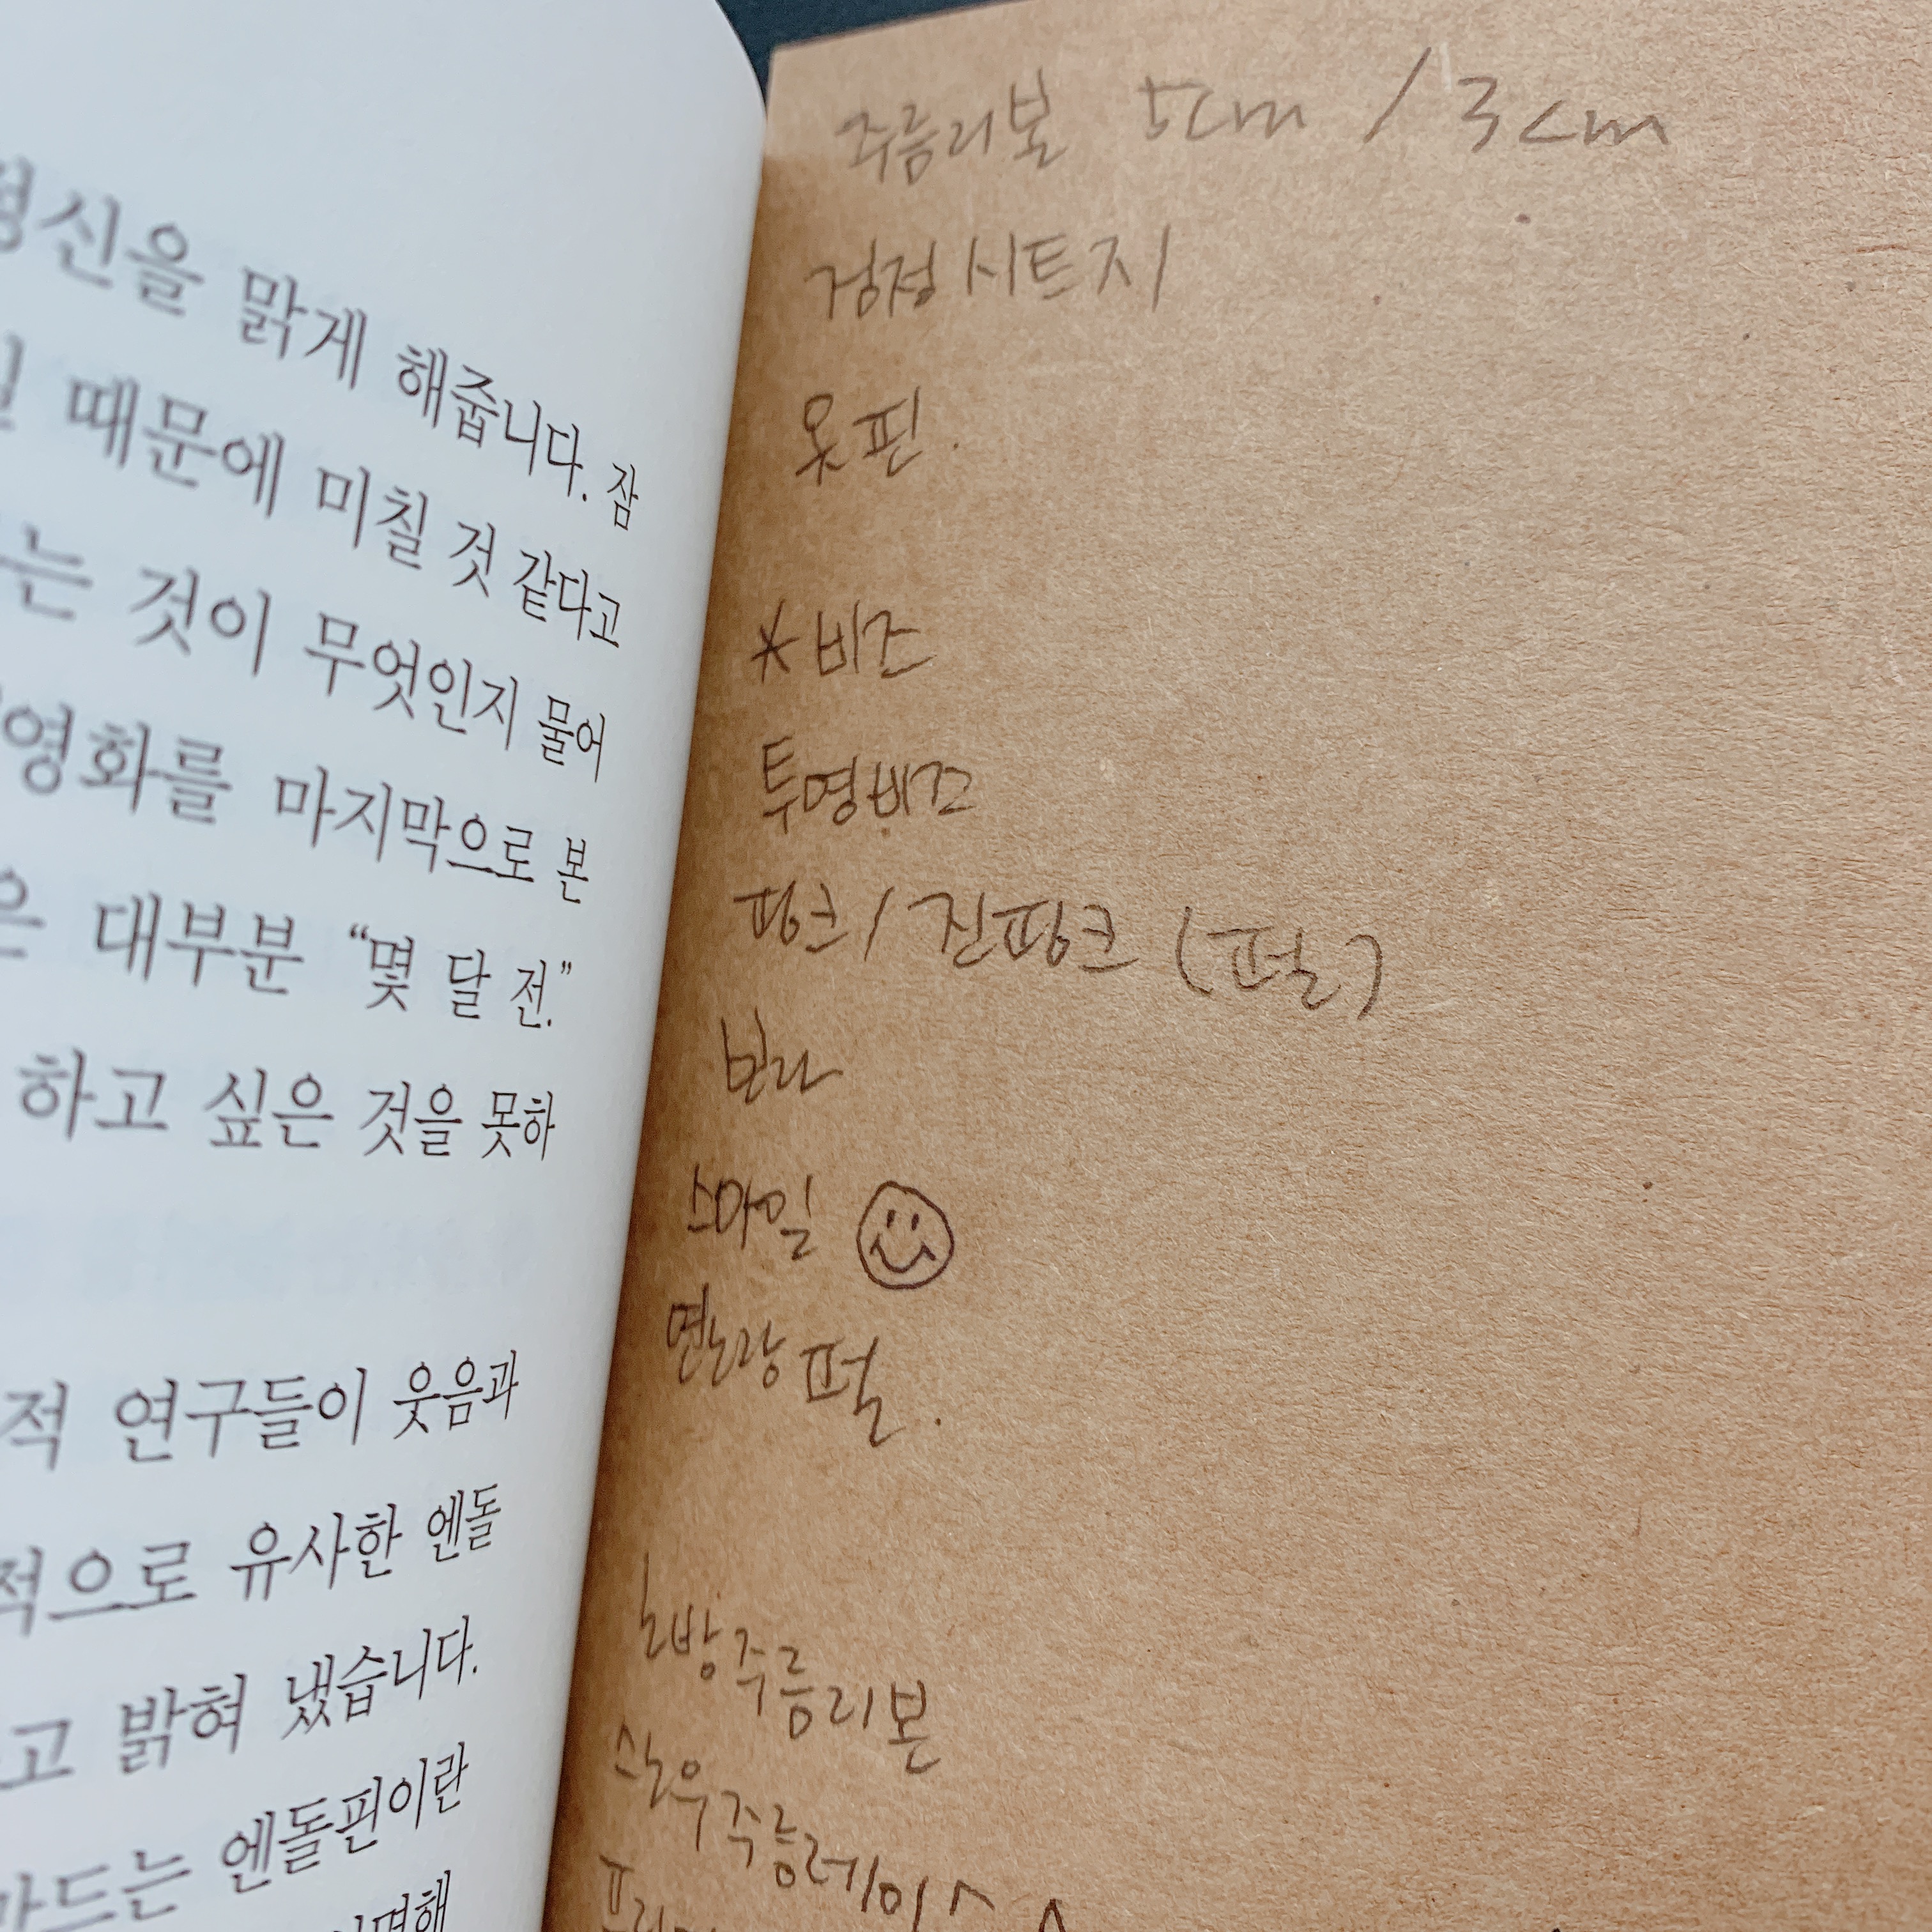 정신을 맑게 해줍니다. 잠
때문에 미칠 것 같다고
는 것이 무엇인지 물어
영화를 마지막으로 본
은 대부분 “몇 달 전.”
하고 싶은 것을 못하
적 연구들이 웃음과
적으로 유사한 엔돌
고 밝혀 냈습니다.
만드는 엔돌핀이란
주름리본 5cm / 3cm
검정시트지
옷핀.
* 비즈
투명비즈
핑크 / 진핑크 (펄)
보라
스마일
연노랑 펄.
노방주름리본
스노우주름레이스